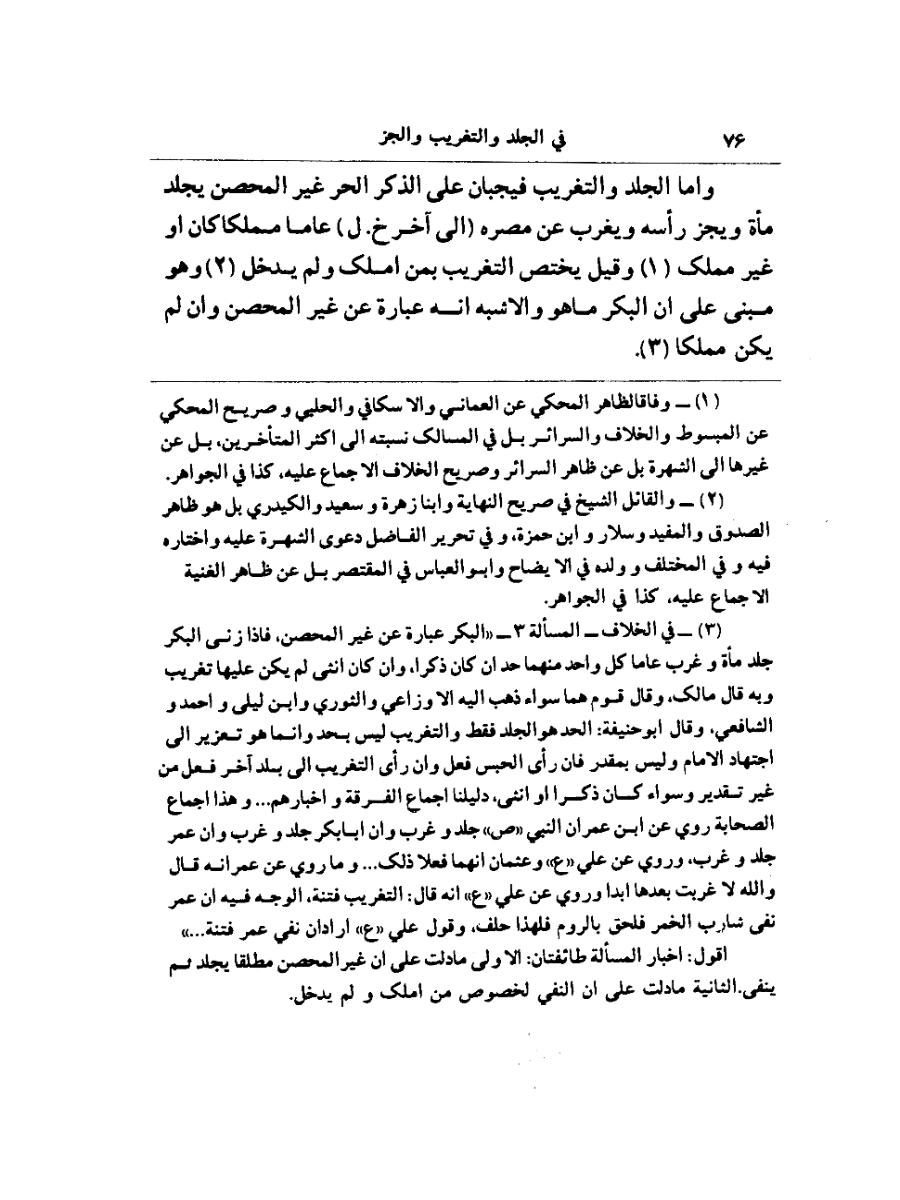 ۷۶ في الجلد والتغريب والجز
واما الجلد والتغريب فيجبان على الذكر الحر غير المحصن يجلد
مأة ويجز رأسه ويغرب عن مصره (الى آخر خ.ل) عاما مملكا كان او
غير مملك (۱) وقيل يختص التغريب بمن املك ولم يدخل (۲) وهو
مبنى على ان البكر ماهو والاشبه انه عبارة عن غير المحصن وان لم
يكن مملكا (۳).
(۱) ــ وفاقا لظاهر المحكي عن العماني والاسكافي والحلبي و صريح المحكي
عن المبسوط والخلاف والسرائر بل في المسالك نسبته الى اكثر المتأخرين، بل عن
غيرها الى الشهرة بل عن ظاهر السرائر وصريح الخلاف الاجماع عليه، كذا في الجواهر.
(۲) ــ والقائل الشيخ في صريح النهاية وابنا زهرة و سعيد والكيدري بل هو ظاهر
الصدوق والمفيد وسلار و ابن حمزة، و في تحرير الفاضل دعوى الشهرة عليه واختاره
فيه و في المختلف و ولده في الايضاح وابوالعباس في المقتصر بل عن ظاهر الغنية
الاجماع عليه، كذا في الجواهر.
(۳) ــ في الخلاف ــ المسألة ۳ ــ «البكر عبارة عن غير المحصن، فاذا زنى البكر
جلد مأة و غرب عاما كل واحد منهما حد ان كان ذكرا، وان كان انثى لم يكن عليها تغريب
وبه قال مالك، وقال قوم هما سواء ذهب اليه الاوزاعي والثوري وابن ليلى و احمد و
الشافعي، وقال ابوحنيفة: الحد هوالجلد فقط والتغريب ليس بحد وانما هو تعزير الى
اجتهاد الامام وليس بمقدر فان رأى الحبس فعل وان رأى التغريب الى بلد آخر فعل من
غير تقدير وسواء كان ذكرا او انثى، دليلنا اجماع الفرقة و اخبارهم... و هذا اجماع
الصحابة روي عن ابن عمر ان النبي «ص» جلد و غرب وان ابابكر جلد و غرب وان عمر
جلد و غرب، وروي عن علي «ع» وعثمان انهما فعلا ذلك... و ما روي عن عمر انه قال
والله لا غربت بعدها ابدا وروي عن علي «ع» انه قال: التغريب فتنة، الوجه فيه ان عمر
نفى شارب الخمر فلحق بالروم فلهذا حلف، وقول علي «ع» اراد ان نفي عمر فتنة...»
اقول: اخبار المسألة طائفتان: الاولى مادلت على ان غير المحصن مطلقا يجلد ثم
ينفى. الثانية مادلت على ان النفي لخصوص من املك و لم يدخل.